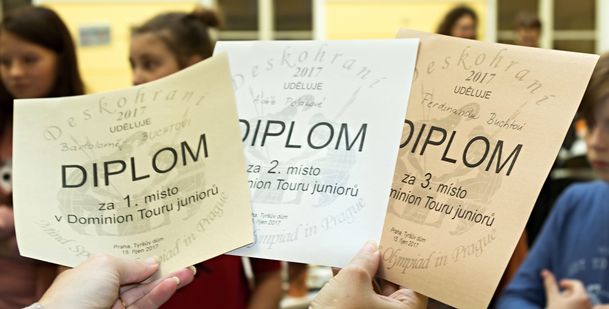 Deskohraní
2017
UDĚLUJE
Bartoloměj BUCHTOVI
DIPLOM
za 1. místo
v Dominion Touru juniorů
Mind Sports Olympiad in Prague
Praha, Tyršův dům
15. říjen 2017
Deskohraní
2017
UDĚLUJE
DIPLOM
za 2. místo
Dominion Touru juniorů
Olympiad in Prague
Praha, Tyršův dům
15. říjen 2017
Deskohraní
2017
UDĚLUJE
Ferdinandu Buchtovi
DIPLOM
za 3. místo
Dominion Touru juniorů
Olympiad in Prague
Praha, Tyršův dům
15. říjen 2017